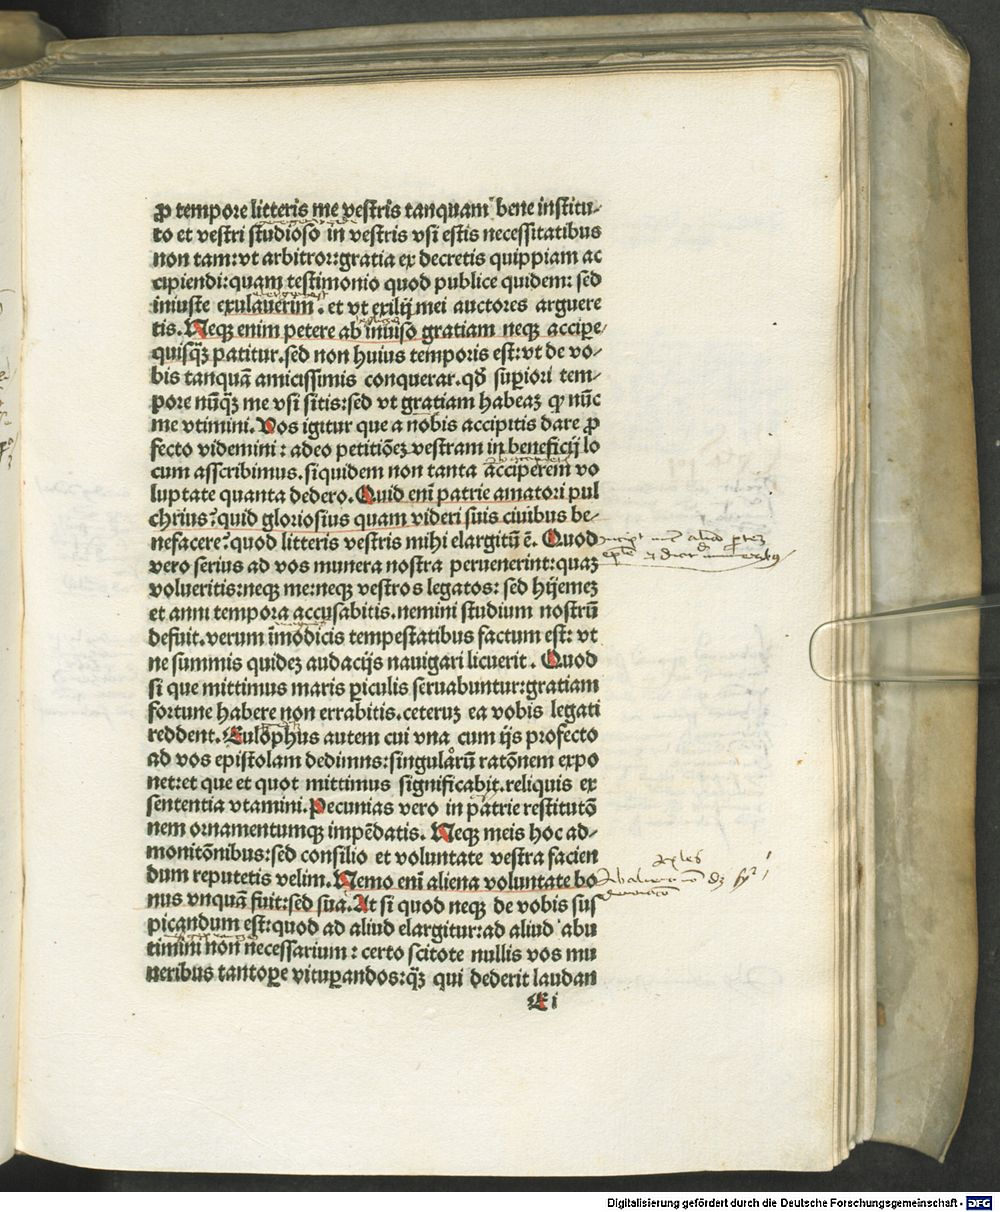 ꝓ tempore litteris me vestris tanquam bene institu-
to et vestri studioso in vestris vsi estis necessitatibus
non tam:vt arbitror:gratia ex decretis quippiam ac
cipiendi:quam testimonio quod publice quidem: sed
iniuste exulauerim. et vt exilij mei auctores arguere
tis. Neqꝫ enim petere ab inuiso gratiam neqꝫ accipe-
quisq̃ꝫ patitur.sed non huius temporis est:vt de vo-
bis tanquã amicissimis conquerar.qđ suꝑiori tem-
pore nũq̃ꝫ me vsi sitis:sed vt gratiam habeaꝫ ꝙ nũc
me vtimini. Vos igitur que a nobis accipitis dare ꝓ
fecto videmini : adeo petitiõeꝫ vestram in beneficij lo
cum asscribimus.siquidem non tanta acciperem vo
luptate quanta dedero. Quid eni patrie amatori pul
chrius?quid gloriosius quam videri suis ciuibus be-
nefacere?quod litteris vestris mihi elargitũ ē. Quod
vero serius ad vos munera nostra peruenerint:quaꝫ
volueritis:neqꝫ me:neqꝫ vestros legatos: sed hijemeꝫ
et anni tempora accusabitis.nemini studium nostrũ
defuit.verum īmodicis tempestatibus factum est: vt
ne summis quideꝫ audacijs nauigari licuerit . Quod
si que mittimus maris ꝑiculis seruabuntur:gratiam
fortune habere non errabitis.ceteruꝫ ea vobis legati
reddent. Eulophus autem cui vna cum ijs profecto
ad vos epistolam dedimns:singularũ ratõnem expo
net:et que et quot mittimus significabit.reliquis ex
sententia vtamini. Pecunias vero in patrie restitutõ
nem ornamentumqꝫ impēdatis. Neqꝫ meis hoc ad-
monitõnibus:sed consilio et voluntate vestra facien
dum reputetis velim. Nemo eni aliena voluntate bo
nus vnquã fuit:sed sua. At si quod neqꝫ de vobis sus
picandum est:quod ad aliud elargitur:ad aliud abu
timini non necessarium : certo scitote nullis vos mu
neribus tantoꝑe vituꝑandos:q̃ꝫ qui dederit laudan
E i
Digitalisierung gefördert durch die Deutsche Forschungsgemeinschaft - DFG